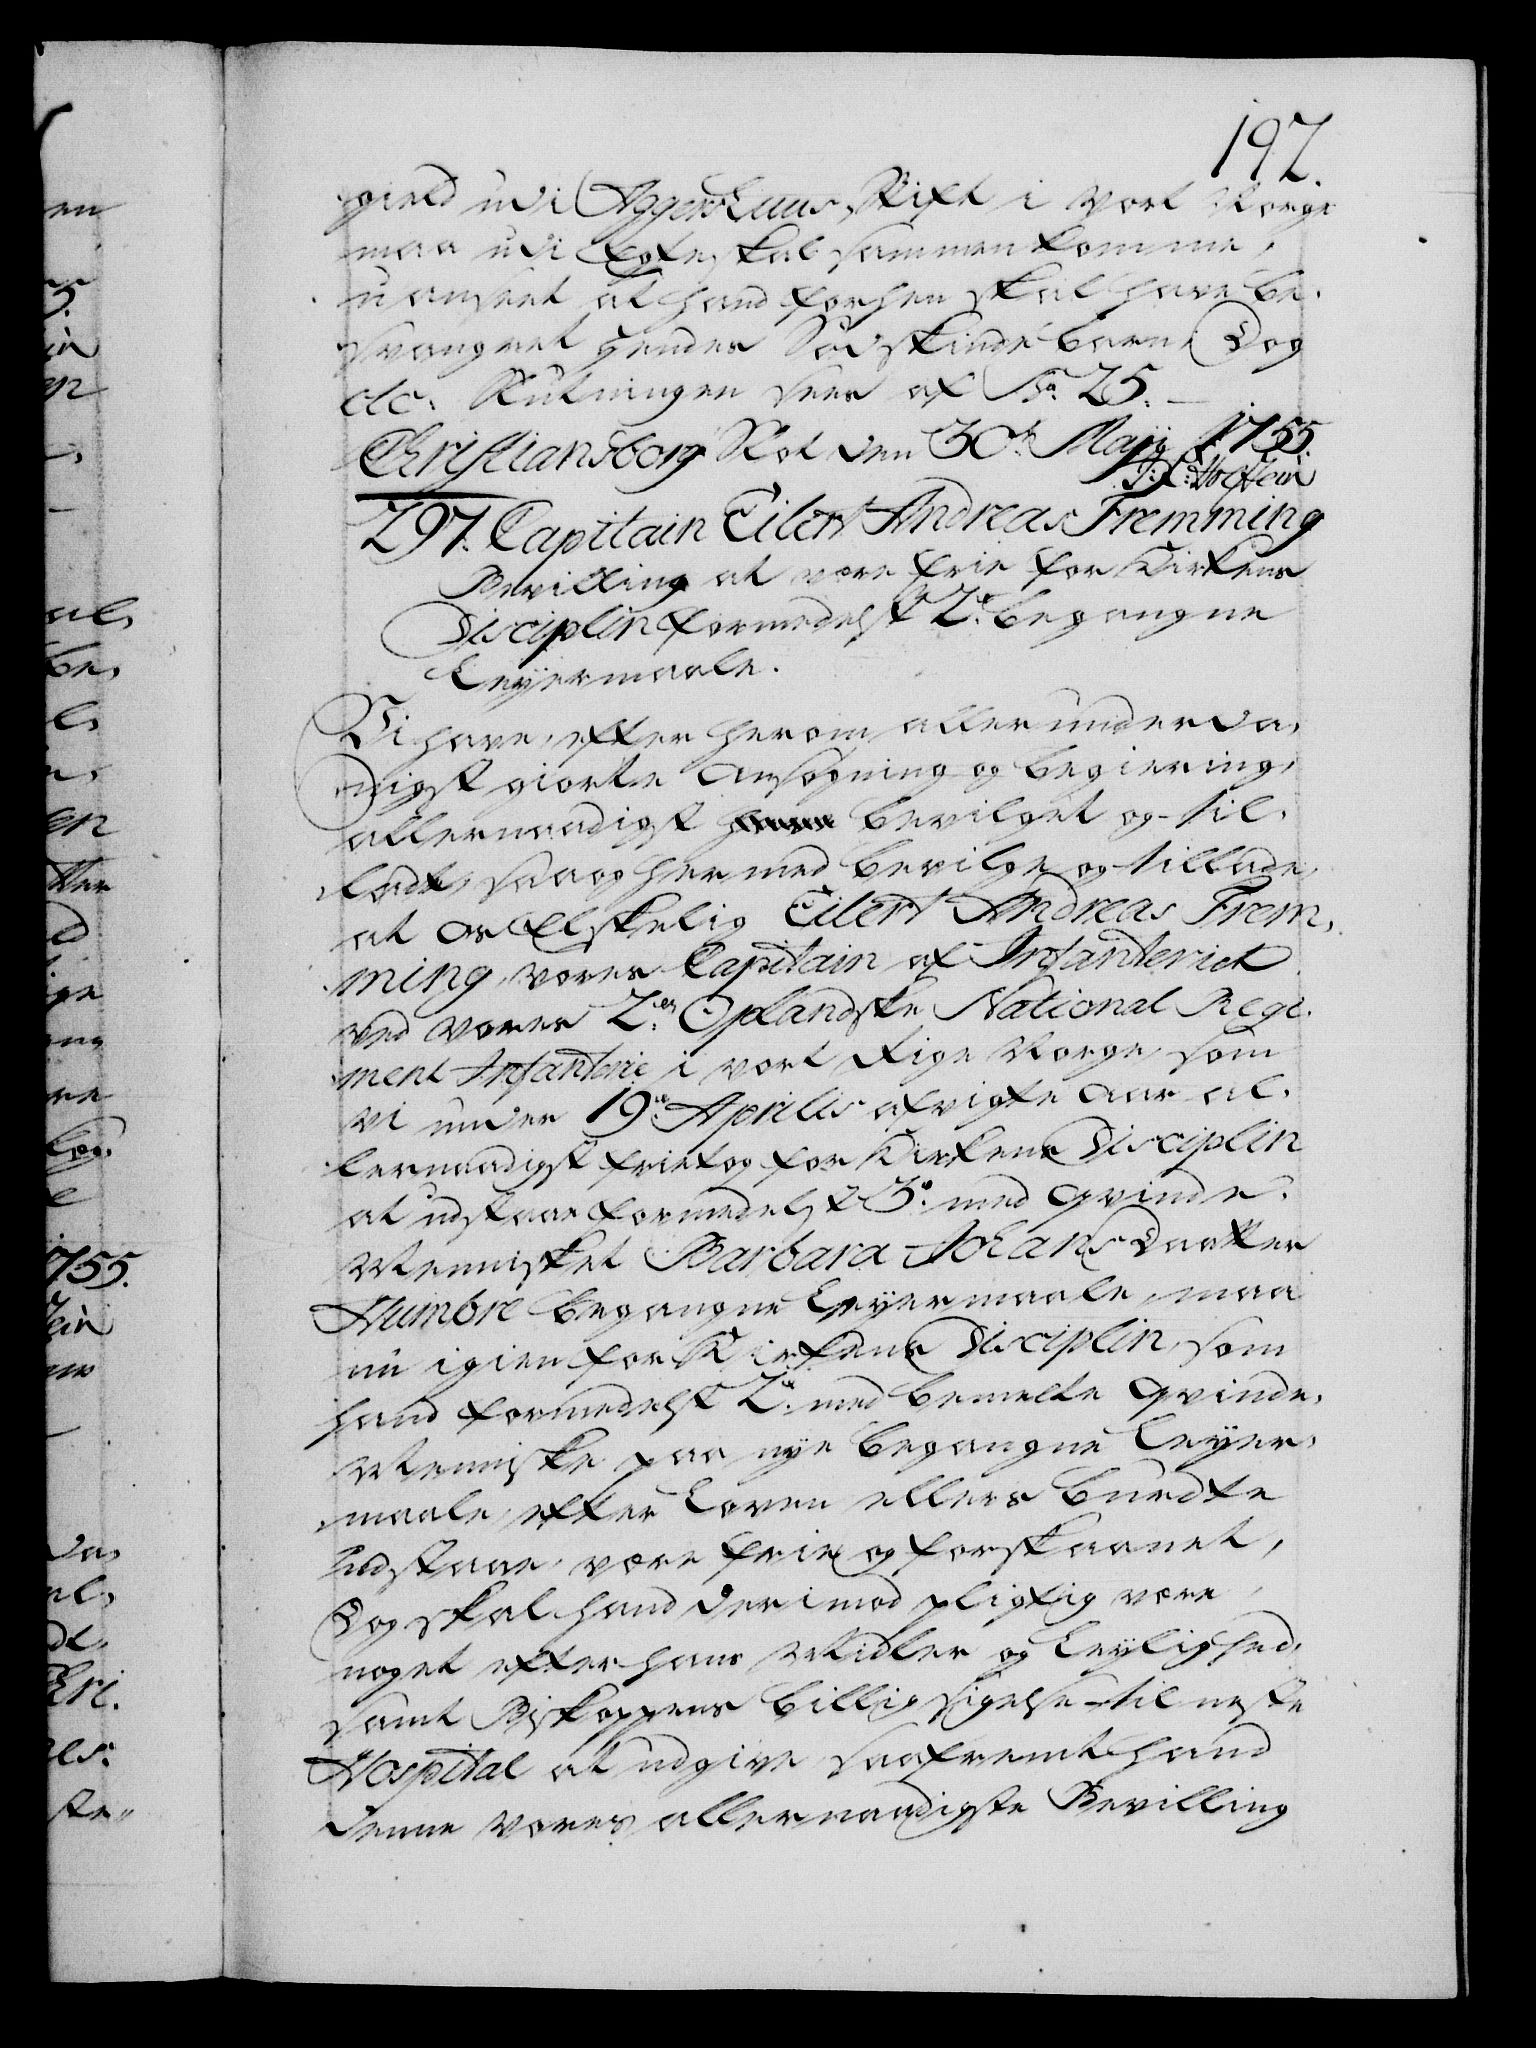 192.
gield udi Aggershuus Stift i vort Norge
maa udi Egteskab sammenkomme,
uanseet at hand forhen skal have be-
svangret hendes Sødskindebarn, Dog
etc. Slutningen sees af No. 25.
Christiansborg Slot den 30te Maÿ 1755.
J. L. Holstein
297. Capitain Eilert Andreas Fremming
Bevilling at være frie for Kirkens
Disciplin formedelst 2de begangne
Leyermaale.
Vi have, efter herom allerunderda-
nigst giorte Ansøgning og begiering,
allernaadigst bevilget og til-
ladt, saa og hermed bevilge og tillade,
at os Elskelig Eilert Andreas Frem-
ming, vores Capitain af Infanteriet
ved vores 2det Oplandske National Regi-
ment Infanterie i vort Rige Norge, som
vi under 19de Aprilis afvigte Aar al-
lernaadigst fritog for Kirkens Disciplin
at udstaae formedelst 3de med Qvinde-
Mennisket Barbara Johans Daatter
Humbre begangne Leyermaale, maa
nu igien for Kirkens Disciplin, som
hand formedelst 2de med bemelte Qvinde-
Menniske paa nye begangne Leyer-
maale, efter Loven ellers burdte
udstaae, være frie og forskaanet,
Dog skal hand derimod pligtig være,
noget efter hans Midler og Leylighed,
samt Biskoppens billig sigelse til neste
Hospital at udgive, saafremt hand
denne vores allernaadigste Bevilling